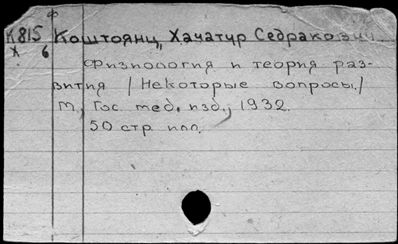 Ф
К815 Коштоянц, Хачатур Седракович
Х 6
Физиология и теория раз-
вития / Некоторые вопросы./
М, Гос. мед. изд., 1932.
50 стр илл.